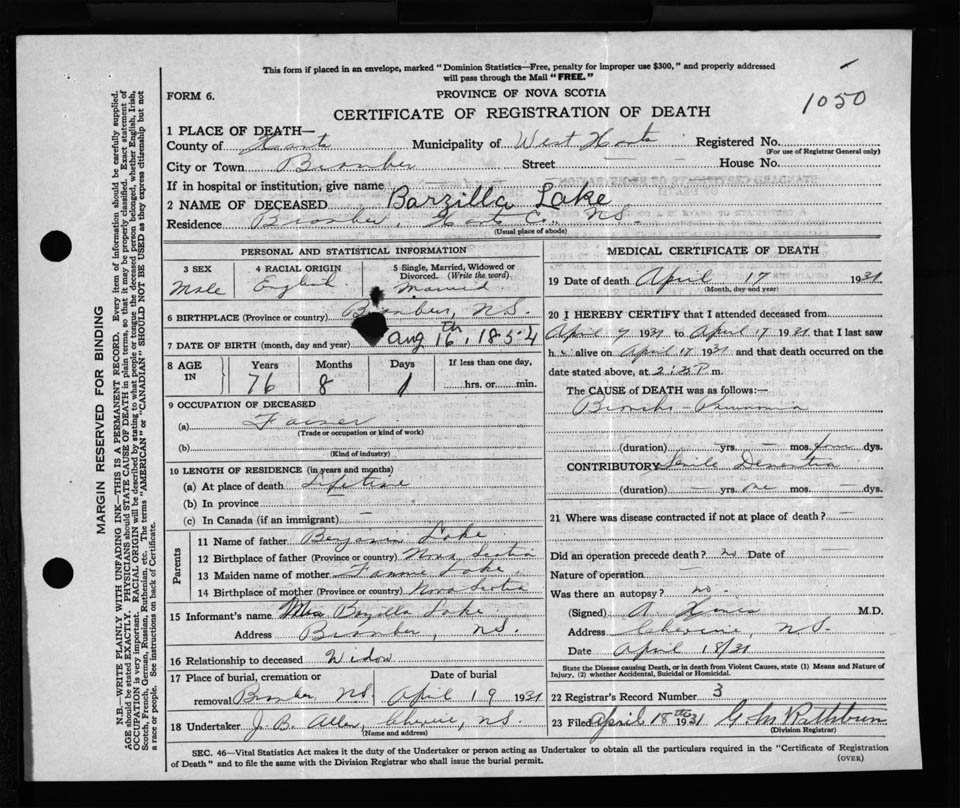 This form if placed in an envelope, marked "Dominion Statistics—Free, penalty for improper use $300," and properly addressed
will pass through the Mail "FREE."
FORM 6.
PROVINCE OF NOVA SCOTIA
1050
CERTIFICATE OF REGISTRATION OF DEATH
1 PLACE OF DEATH—
County of Hants Municipality of West Hants Registered No.
(For use of Registrar General only)
City or Town Bramber Street — House No.
If in hospital or institution, give name
2 NAME OF DECEASED Barzilla Lake
Residence Bramber, Hants Co. N.S.
(Usual place of abode)
PERSONAL AND STATISTICAL INFORMATION
3 SEX
Male
4 RACIAL ORIGIN
English
5 Single, Married, Widowed or
Divorced. (Write the word)
Married
6 BIRTHPLACE (Province or country) Bramber, N.S.
7 DATE OF BIRTH (month, day and year) Aug 16th, 1854
8 AGE IN
Years Months Days If less than one day,
76 8 1 hrs. or min.
9 OCCUPATION OF DECEASED
(a) Farmer
(Trade or occupation or kind of work)
(b)
(Kind of industry)
10 LENGTH OF RESIDENCE (in years and months)
(a) At place of death Lifetime
(b) In province
(c) In Canada (if an immigrant) —
Parents
11 Name of father Benjamin Lake
12 Birthplace of father (Province or country) Nova Scotia
13 Maiden name of mother Fannie Lake
14 Birthplace of mother (Province or country) Nova Scotia
15 Informant's name Mrs Barzilla Lake
Address Bramber, N.S.
16 Relationship to deceased Widow
17 Place of burial, cremation or Date of burial
removal Bramber, N.S. April 19 1931
18 Undertaker J. B. Allen, Cheverie, N.S.
(Name and address)
MEDICAL CERTIFICATE OF DEATH
19 Date of death April 17 1931
(Month, day and year)
20 I HEREBY CERTIFY that I attended deceased from
April 7 1931 to April 17 1931 that I last saw
h im alive on April 17 1931 and that death occurred on the
date stated above, at P.m.
The CAUSE of DEATH was as follows:—
Broncho Pneumonia
(duration) — yrs. — mos. four dys.
CONTRIBUTORY Senile Dementia
(duration) — yrs. one mos. — dys.
21 Where was disease contracted if not at place of death? —
Did an operation precede death? no Date of —
Nature of operation —
Was there an autopsy? no.
(Signed) A. M.D.
Address Cheverie, N.S.
Date April 18/31
State the Disease causing Death, or in death from Violent Causes, state (1) Means and Nature of
Injury, (2) whether Accidental, Suicidal or Homicidal.
22 Registrar's Record Number 3
23 Filed April 18th 1931 G. M Rathbun
(Division Registrar)
SEC. 46—Vital Statistics Act makes it the duty of the Undertaker or person acting as Undertaker to obtain all the particulars required in the "Certificate of Registration
of Death" and to file the same with the Division Registrar who shall issue the burial permit.
(OVER)
MARGIN RESERVED FOR BINDING
N.B.—WRITE PLAINLY WITH UNFADING INK—THIS IS A PERMANENT RECORD. Every item of information should be carefully supplied.
AGE should be stated EXACTLY. PHYSICIANS should STATE CAUSE OF DEATH in plain terms, so that it may be properly classified. Exact statement of
OCCUPATION is very important. RACIAL ORIGIN will be described by stating to what people or tongue the deceased person belonged, whether English, Irish,
Scotch, French, German, Russian, Ruthenian, etc. The terms "AMERICAN" or "CANADIAN" SHOULD NOT BE USED as they express citizenship but not
a race or people. See instructions on back of Certificate.